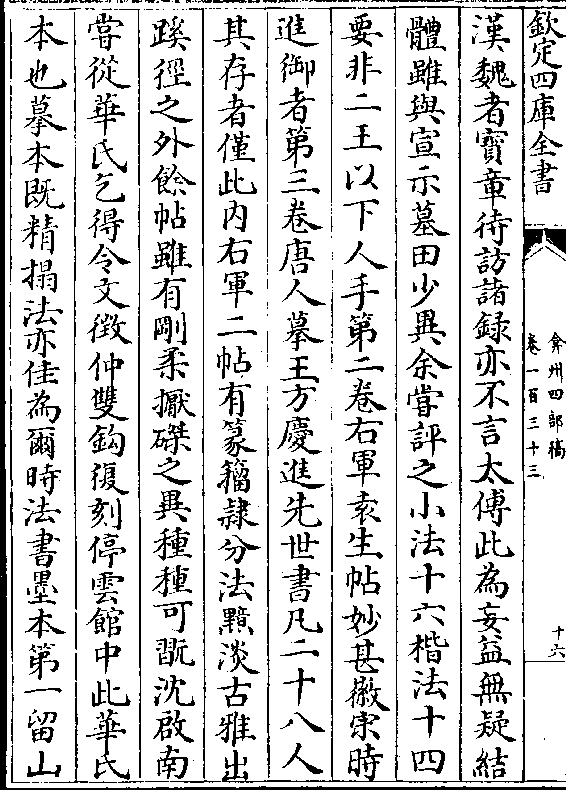 欽定四庫全書
弇州四部稿
卷一百三十三
十六
漢魏者寶章待訪諸録亦不言太傅此為妄益無疑結
體雖與宣示墓田少異余嘗評之小法十六楷法十四
要非二王以下人手第二卷右軍袁生帖妙甚徽宗時
進御者第三卷唐人摹王方慶進先世書凡二十八人
其存者僅此内右軍二帖有篆籀隸分法黯淡古雅出
蹊徑之外餘帖雖有剛柔撅磔之異種種可翫沈啟南
嘗從華氏乞得令文徴仲雙鈎復刻停雲館中此華氏
本也摹本既精搨法亦佳為爾時法書墨本第一留山